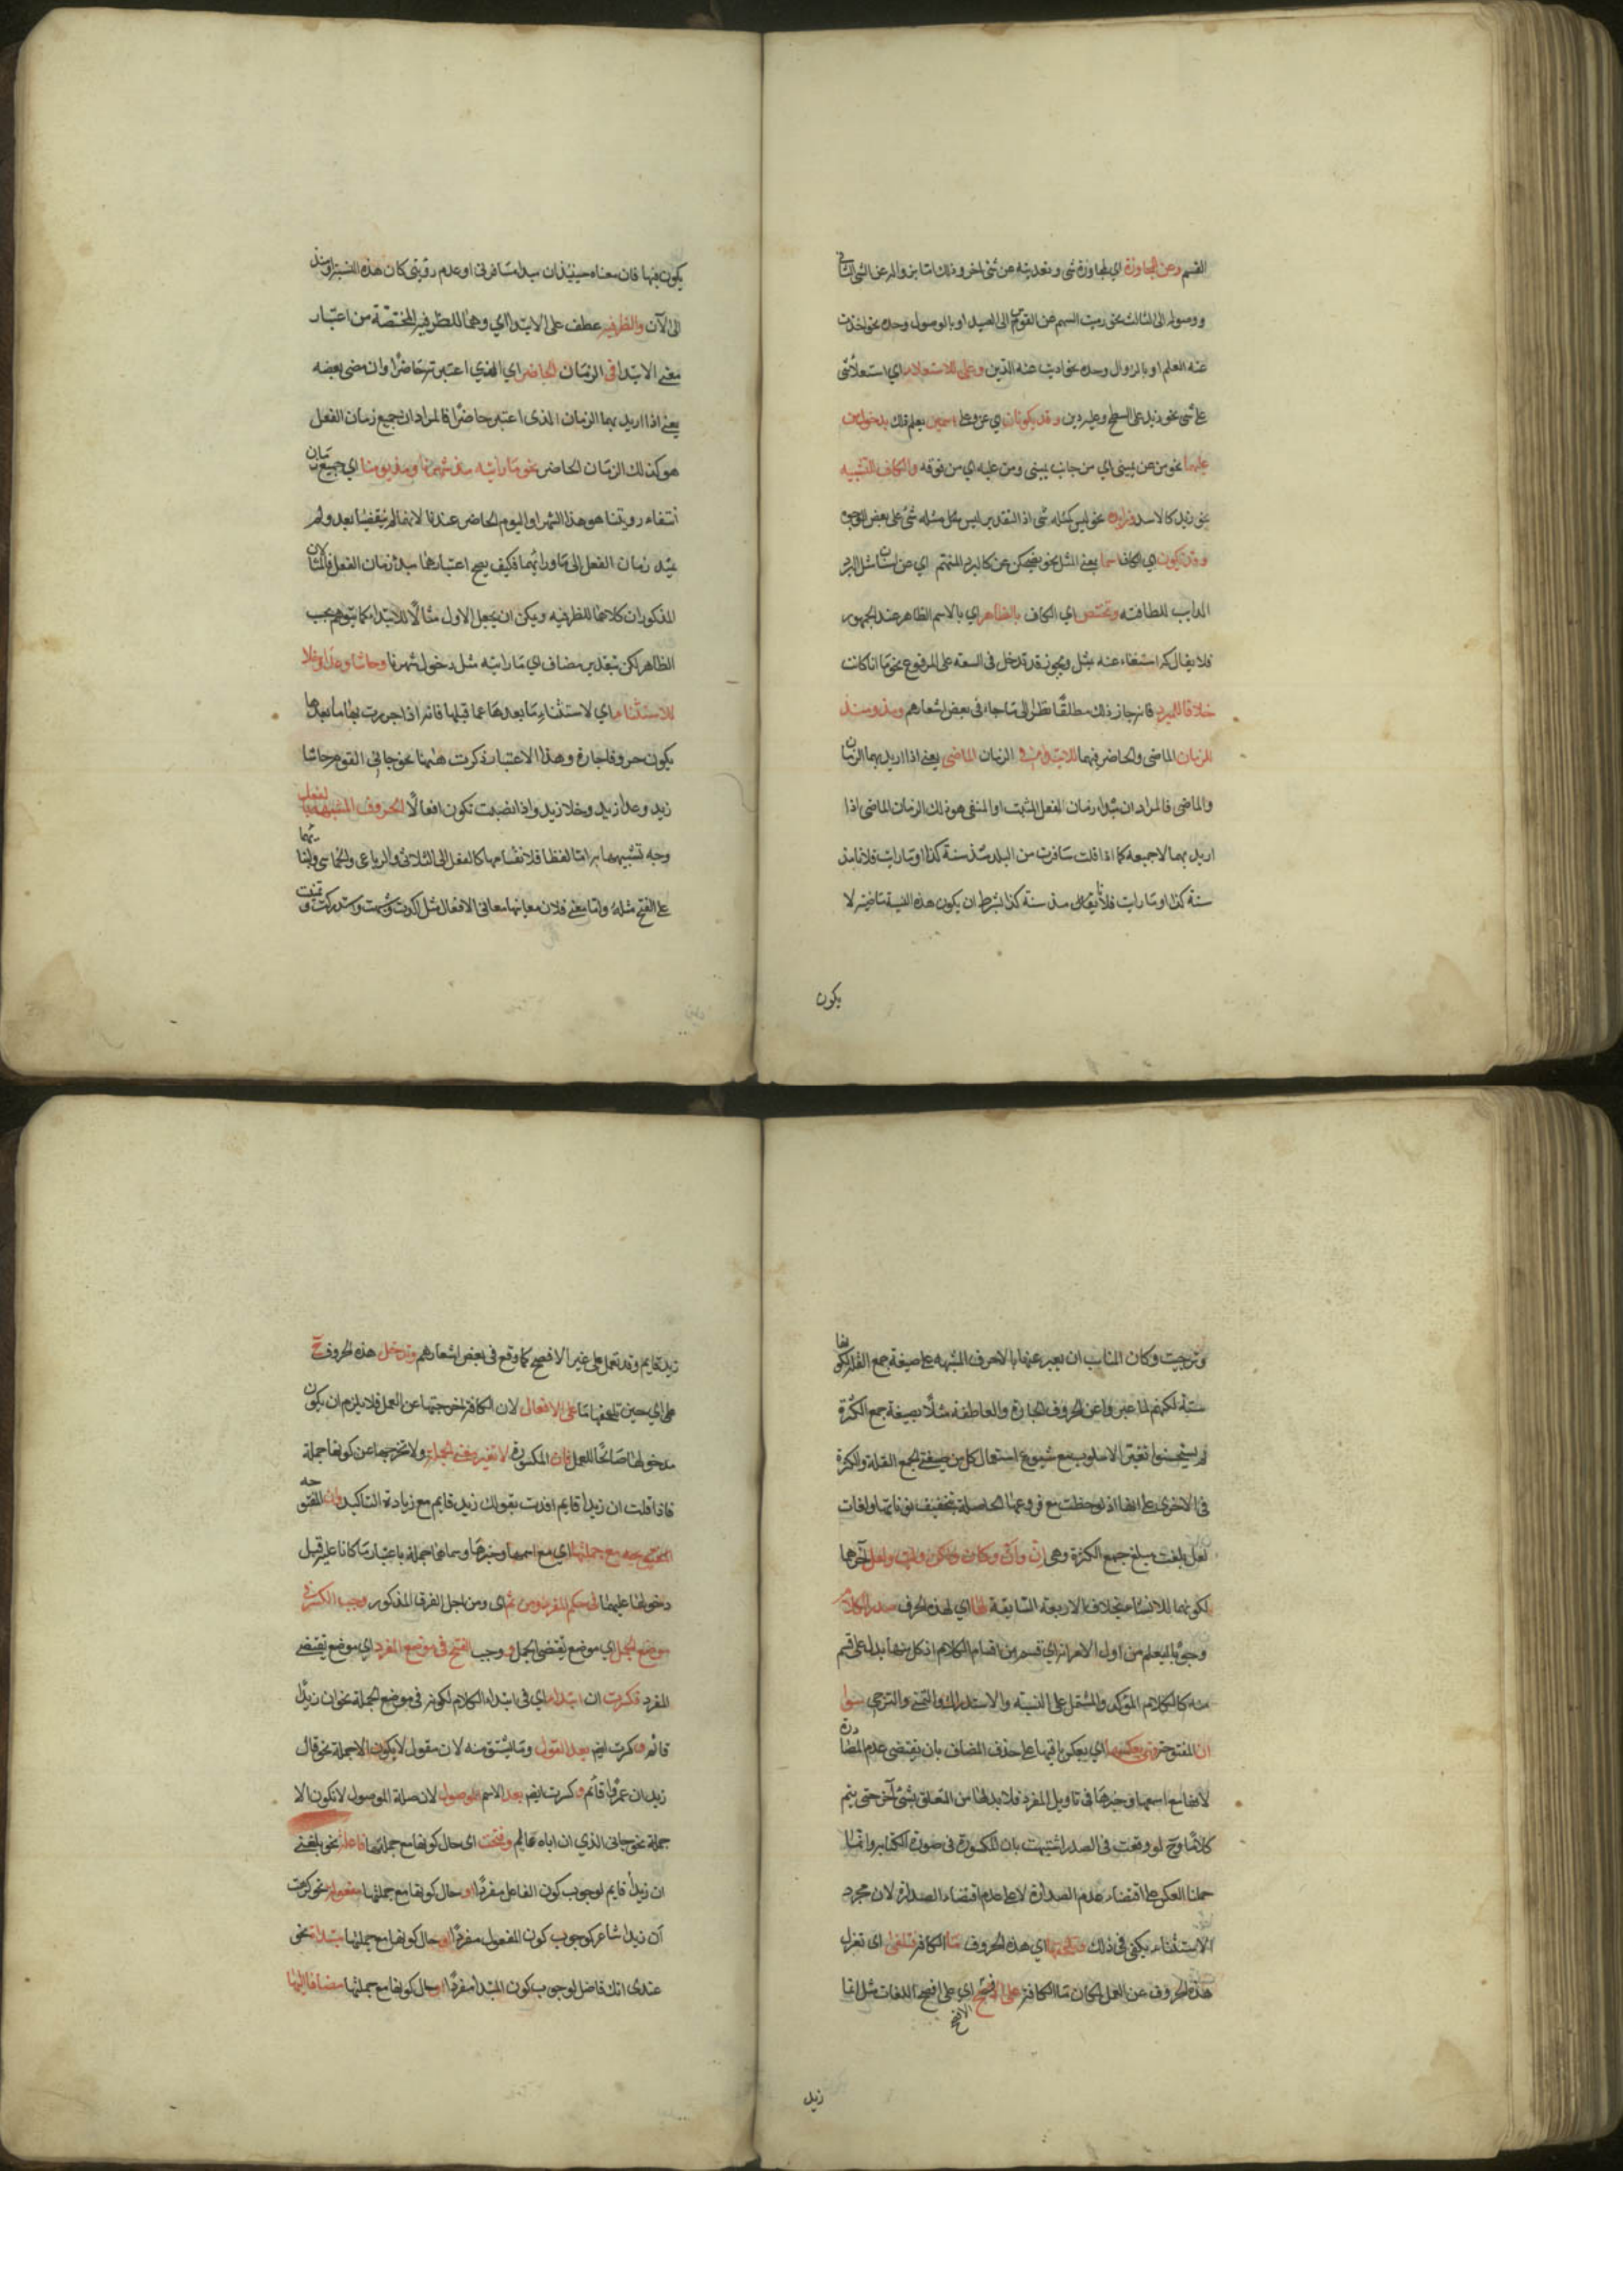 القسم وعن للمجاوزة اي لمجاوزة شئ وتعديته عن شئ اخر وذلك اما بزواله عن الشئ الثانى
ووصوله الى الثالث نحو رميت السهم عن القوس الى الصيد او بالوصول وحده نحو اخذت
عنه العلم او بالزوال وحده نحو اديت عنه الدين وعلى للاستعلاء اي استعلاء شئ
على شئ نحو زيد على السطح وعليه دين وقد يكونان اي عن وعلى اسمين يعلم ذلك بدخول من
عليهما نحو من عن يمينى اي من جانب يمينى ومن عليه اي من فوقه والكاف للتشبيه
نحو زيد كالاسد وزايدة نحو ليس كمثله شئ اذ التقدير ليس مثل مثله شئ على بعض الوجوه
وقد تكون اي الكاف اسما بمعنى المثل نحو يضحكن عن كالبرد المنهم اي عن اسنان مثل البرد
الذايب للطافته وتختص اي الكاف بالظاهر اي بالاسم الظاهر عند الجمهور
فلا يقال كه استغناء عنه بمثل ونحوه قد تدخل فى السعة على المرفوع نحو ما انا كانت
خلافا للمبرد فانه جاز ذلك مطلقا نظرا الى ما جاء فى بعض اشعارهم ومذ ومنذ
للزمان الماضى والحاضر فهما للابتداء فى الزمان الماضى يعنى اذا اريد بهما الزمان
والماضى فالمراد ان مبداء زمان الفعل المثبت او المنفى هو ذلك الزمان الماضى اذا
اريد بهما لا جميعه كما اذا قلت سافرت من البلد مذ سنة كذا او ما رايت فلانا مذ
سنة كذا او ما رايت فلانا مذ سنة كذا بشرط ان يكون هذه السنة ماضية لا
يكون
يكون فيها فان معناه حينئذ ان مبدا مسافرتى او عدم رويتى كان هذه السنة وامتد
الى الآن والظرفية عطف على الابتداء اي وهما للظرفية المختصة من اعتبار
معنى الابتدا فى الزمان الحاضر اي الذي اعتبرته حاضرا وان مضى بعضه
يعنى اذا اريد بهما الزمان الذى اعتبر حاضرا فالمراد ان جميع زمان الفعل
هو كذلك الزمان الحاضر نحو ما رايته مذ شهرنا ومذ يومنا اي جميع زمان
انتفاء رويتنا هو هذا الشهر او اليوم الحاضر عندنا لانهما لم ينقضيا بعد ولم
يمتد زمان الفعل الى ما ورائهما فكيف يصح اعتبارهما مبدأ زمان الفعل فالمثالان
المذكوران كلاهما للظرفيه ويمكن ان يجعل الاول مثالا للابتداء كما يتوهم بحسب
الظاهر لكن بتقدير مضاف اي ما رايته مثل دخول شهرنا وحاشا وعدا وخلا
للاستثناء اي لاستثناء ما بعدها عما قبلها فانه اذا جررت بها ما بعدها
يكون حروفا جارة وهذا الاعتبار ذكرت ههنا نحو جائنى القوم حاشا
زيد وعدا زيد وخلا زيد واذا نصبت تكون افعالا الحروف المشبهة بالفعل
وجه تشبيهها به اما لفظا فلانقسامها كالفعل الى الثلاثى والرباعى والخماسى ولبنائها
على الفتح مثله واما معنى فلان معانيها معانى الافعال مثل اكدت وشبهت واستدركت وتمنيت
وترجيت وكان المناسب ان يعبر عنها بالاحرف المشبهه على صيغة جمع القلة لكونها
ستة لكنهم لما عبروا عن الحروف الجارة والعاطفة مثلا بصيغة جمع الكثرة
لم يستحسنوا تغيير الاسلوب مع شيوع استعمال كل من صيغتى الجمع القلة والكثرة
فى الاخرى على انها اذ لوحظت مع فروعها الحاصلة بتخفيف نوناتها ولغات
لعل بلغت مبلغ جمع الكثرة وهى انّ وأنّ وكان ولكن وليت ولعل آخرهما
لكونهما للانشاء بخلاف الاربعة السابقة لها اي لهذه الحرف صدر الكلام
وجوبا ليعلم من اول الامر انه اي قسم من اقسام الكلام اذ كل منها يدل على قسم
منه كالكلام المؤكد والمشتمل على التشبيه والاستدراك والتمنى والترجى سوا
ان المفتوحة فهى بعكسها اي بعكس باقيها على حذف المضاف بان يقتضى عدم الصدارة
لانها مع اسمها وخبرها فى تاويل المفرد فلا بد لها من التعلق بشئ آخر حتى يتم
كلاما وح لو وقعت فى الصدر اشتبهت بان المكسورة فى صورة الكتابة وانما
حملنا العكس على اقتضاء عدم الصدارة لا على عدم اقتضاء الصدارة لان مجرد
الاستثناء يكفى فى ذلك وتلحقها اي هذه الحروف ما الكافة فتلغى اى تعزل
هذه الحروف عن العمل لمكان ما الكافة على الافصح اي على افصح اللغات مثل انما
الافصح
زيد
زيد قايم وقد تعمل على غير الافصح كما وقع فى بعض اشعارهم وتدخل هذه الحروف ح
على اي حين تلحقها ما على الافعال لان الكافة اخرجتها عن العمل فلا يلزم ان يكون
مدخولها صالحا للعمل فان المكسورة لا تغير معنى الجملة ولا تخرجها عن كونها جملة
فاذا قلت ان زيدا قايم افدت بقولك زيد قايم مع زيادة التاكيد وان المفتوحه
المفتوحه مع جملتها اي مع اسمها وخبرها وسماها جملة باعتبار ما كانا عليه قبل
دخولها عليهما فى حكم المفرد ومن ثم اى ومن اجل الفرق المذكور وجب الكسر فى
موضع الجمل اي موضع يقتضى الجمل ووجب الفتح فى موضع المفرد اي موضع يقتضى
المفرد فكسرت ان ابتداء اي فى ابتداء الكلام لكونه فى موضع الجملة نحو ان زيدا
قائم وكسرت ايضا بعد القول وما يشتق منه لان مقول لا يكون الا جملة نحو قال
زيد ان عمروا قائم وكسرت ايضا بعد الاسم الموصول لان صلة الموصول لا تكون الا
جملة نحو جائى الذي ان اباه عالم وفتحت اى حال كونها مع جملتها فاعلة نحو بلغنى
ان زيدا قايم لوجوب كون الفاعل مفردا او حال كونها مع جملتها مفعولة نحو كرهت
أن زيدا شاعر لوجوب كون المفعول مفردا او حال كونها مع جملتها مبتداة نحو
عندى انك فاضل لوجوب كون المبتدا مفردا او حال كونها مع جملتها مضافا اليها